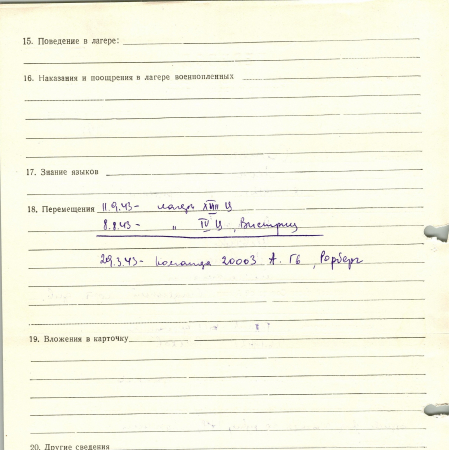 15. Поведение в лагере:
16. Наказания и поощрения в лагере военнопленных
17. Знание языков
18. Перемещения 11.9.43- лагерь XIII Ц
8.8.43- " IV Ц, Вистриц
29.3.43- команда 20003 А. Гб, Рорберг
19. Вложения в карточку
20. Другие сведения